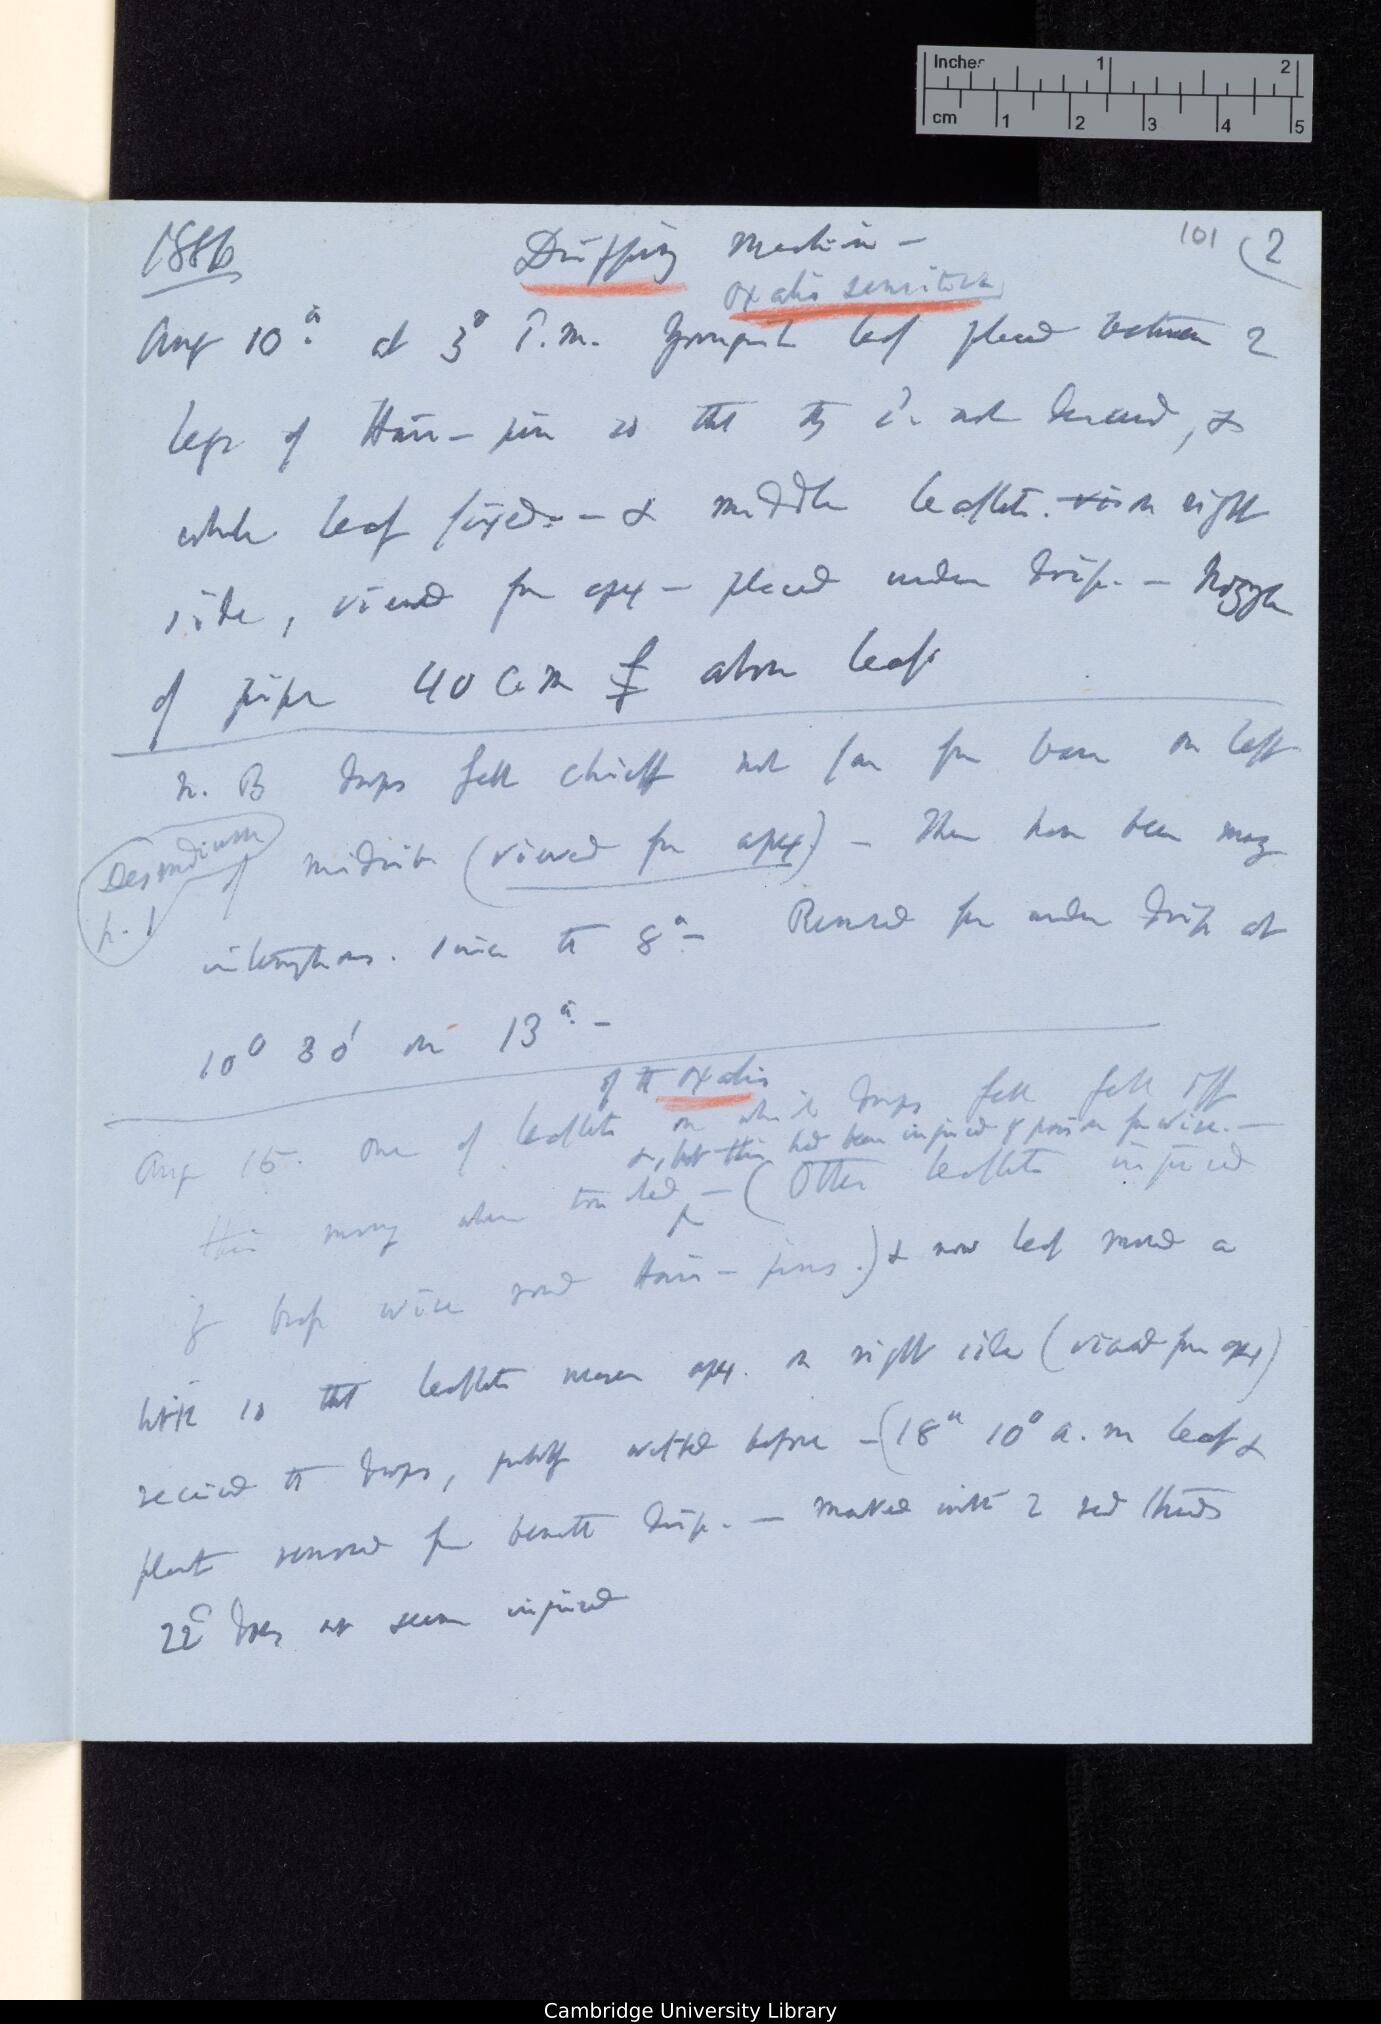 Inches 1 2
cm 1 2 3 4 5
101 (2
Dripping Machine —
Oxalis sensitiva
Aug 10th at 3° P.M. Youngest leaf placed between 2
legs of Hair-pin so that they is not, &
whole leaf fixed. — & middle leaflets on right
side, viewed from apex — placed under drip. — Nozzle
of pipe 40 Cm above leaf
N. B drops fell chiefly not far from base on left
Desmodium
p. 1
of midrib (viewed from apex) — There have been many
interruptions. since the 8th — Removed from under drip at
10° 30' on 13th —
of the Oxalis
Aug 15. One of leaflets on which drops fell fell off
&, but this had been injured by from wire. —
this morning when touched — (Other leaflets injured
by wire Hair-pins.) & now leaf moved a
little so that leaflets nearer apex. on right side (viewed from apex)
received the drops, partly wetted before — (18th 10° a.m leaf &
plant removed from beneath drip. — Marked with 2 red threads
22d does not seem injured
Cambridge University Library